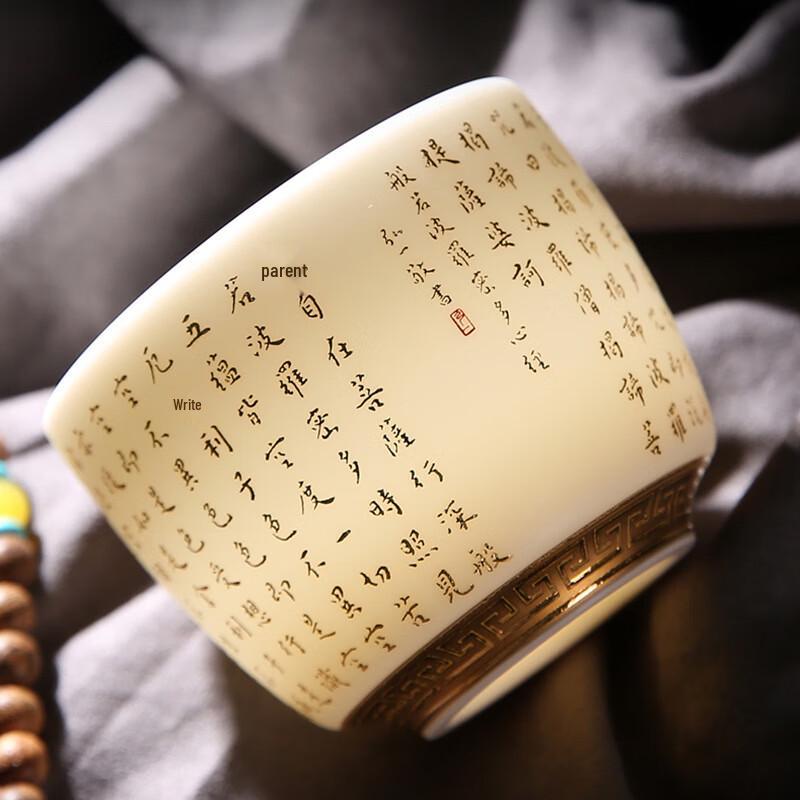 咒曰揭諦揭諦波羅
揭諦波羅僧揭諦菩
提薩婆訶
般若波羅密多心經
弘一敬書
parent
自在菩薩行深般
若波羅密多時照見
五蘊皆空度一切苦
厄
Write
利子色不異空
空不異色色即是空
空即是色受想行識